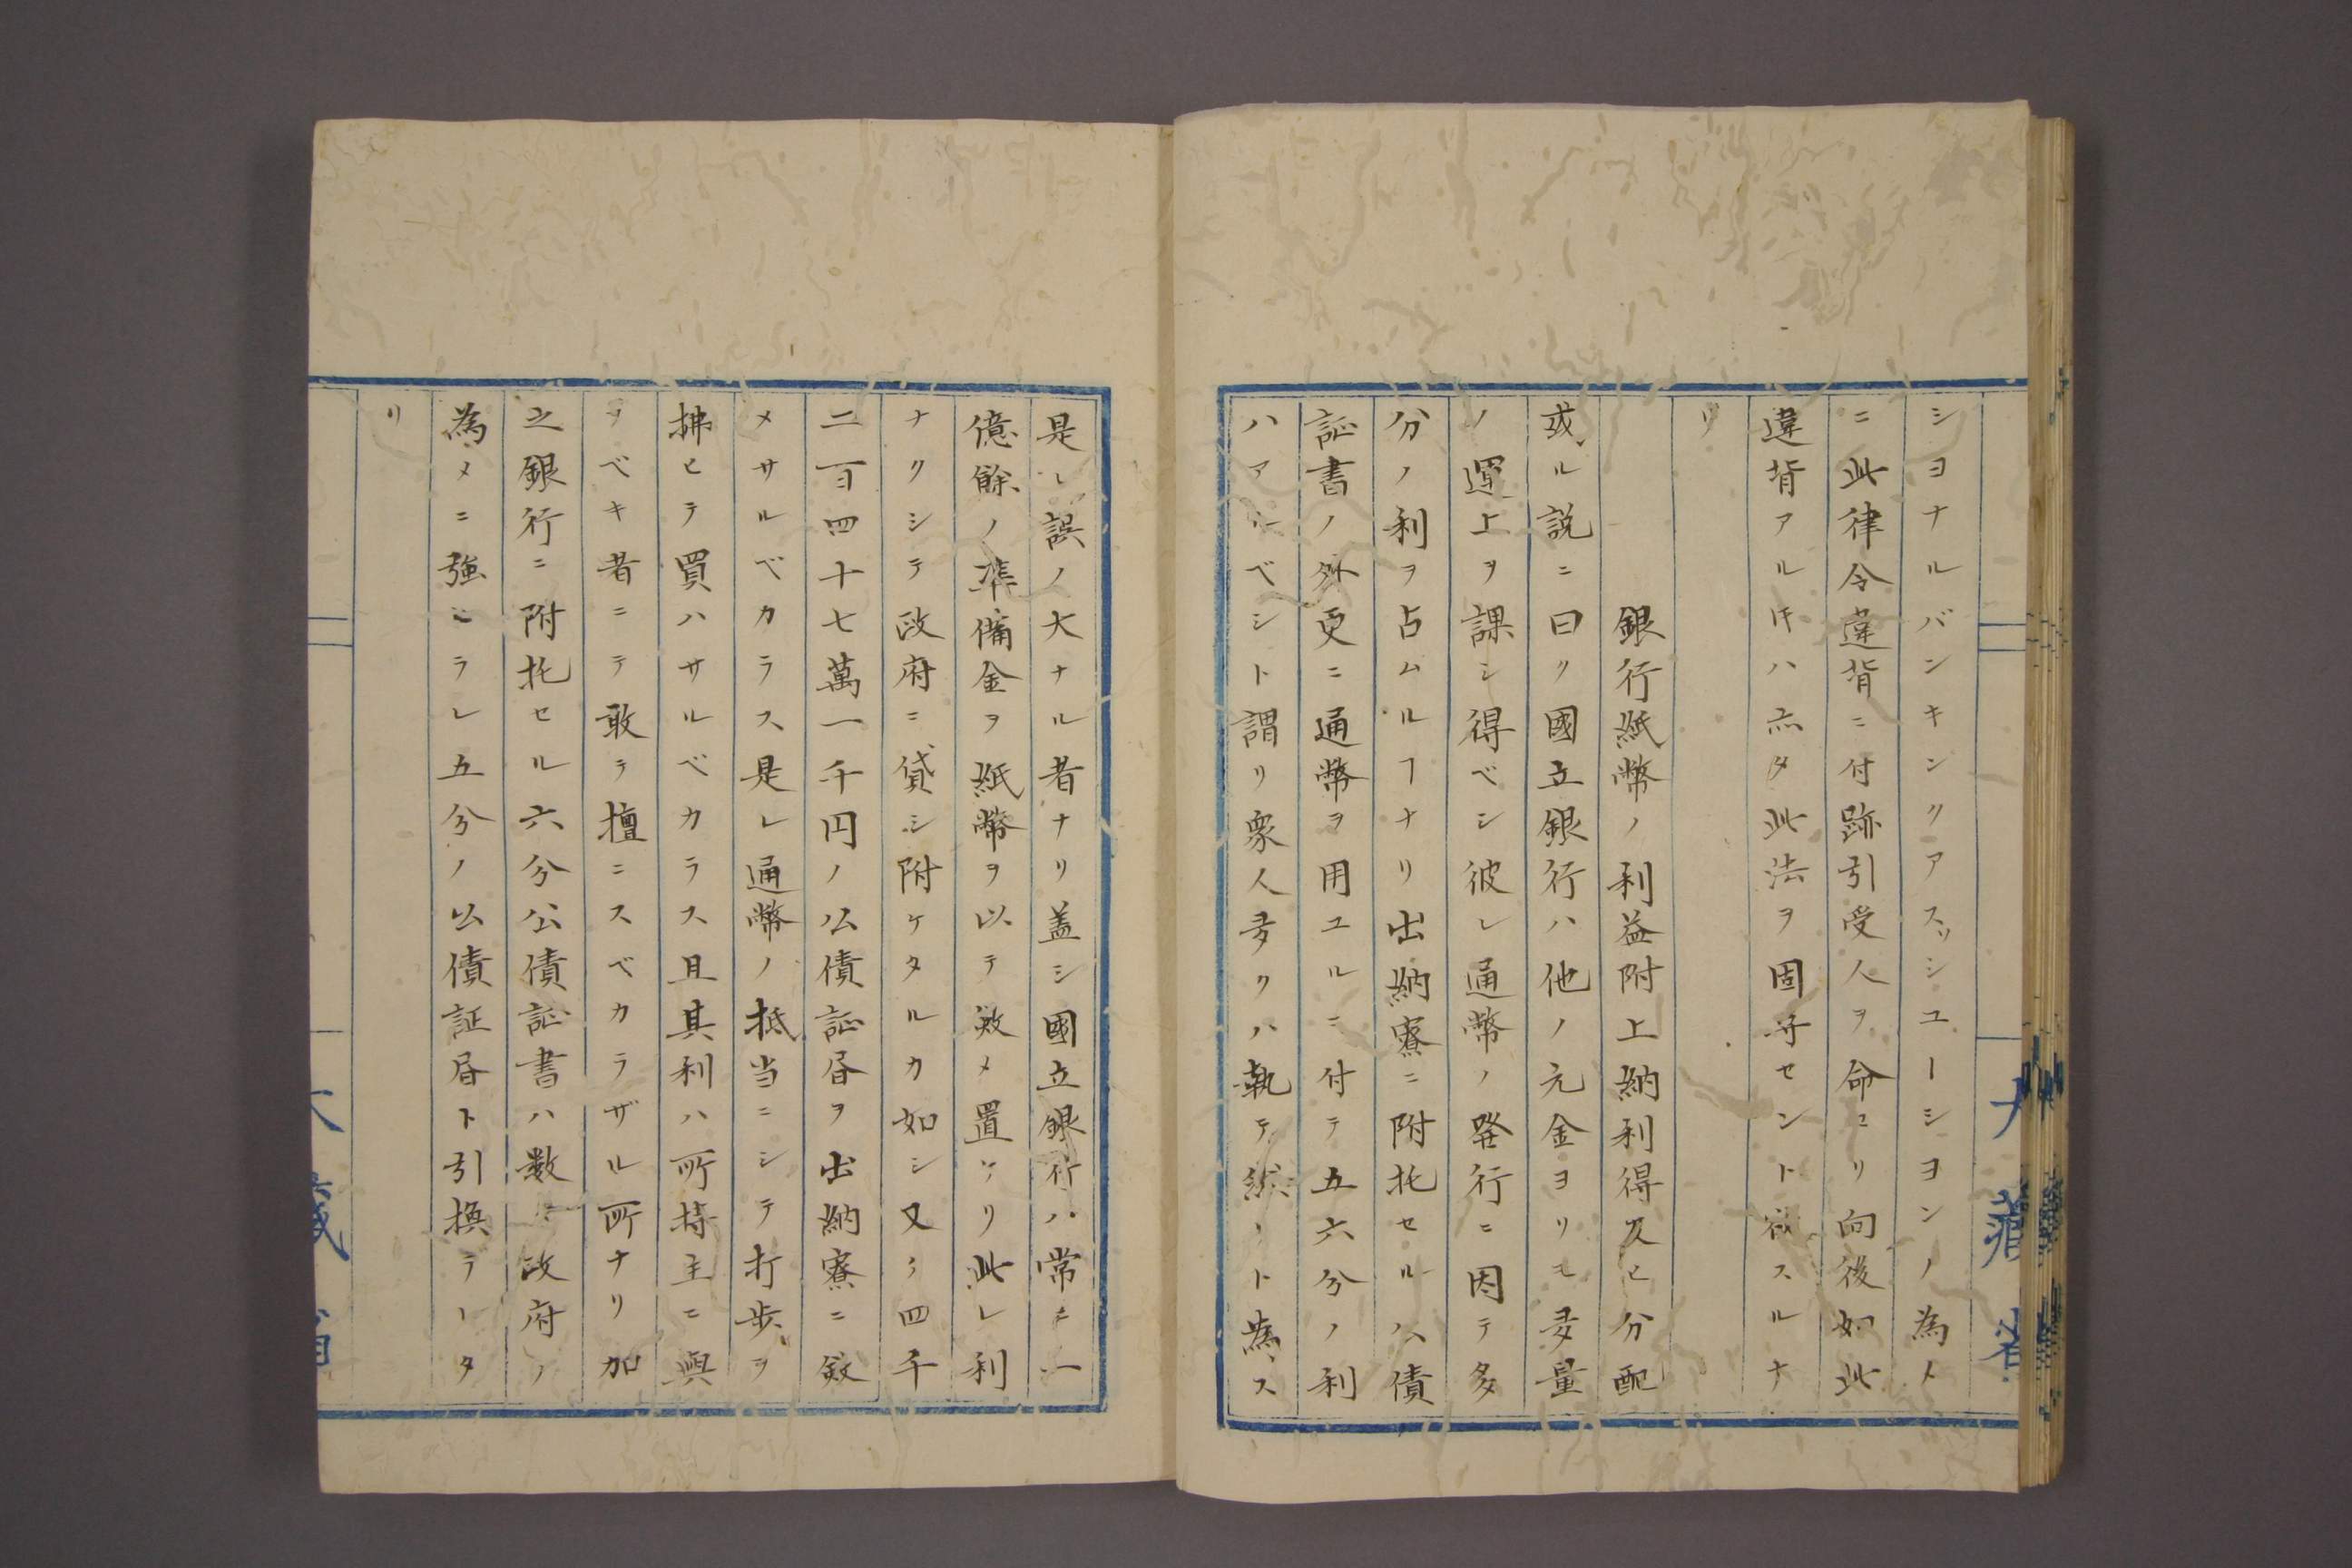 シヨナルバンキンクアスソシユーシヨンノ為メ
ニ此律令違背ニ付跡引受人ヲ命セリ向後如此
違背アル𪜈ハ亦タ此法ヲ固守セント欲スルナ
リ
銀行紙幣ノ利益附上納利得及ヒ分配
或ル説ニ曰ク國立銀行ハ他ノ元金ヨリモ多量
ノ運上ヲ課シ得ベシ彼レ通幣ノ発行ニ因テ多
分ノ利ヲ占ムルヿナリ出納寮ニ附托セル公債
証書ノ外更ニ通幣ヲ用ユルニ付テ五六分ノ利
ハアルベシト謂リ衆人多クハ執テ然リト為ス
大藏省
是レ誤ノ大ナル者ナリ盖シ國立銀行ハ常ニ一
億餘ノ準備金ヲ紙幣ヲ以テ斂メ置ケリ此レ利
ナクシテ政府ニ貸シ附ケタルカ如シ又タ四千
二百四十七萬一千円ノ公債証書ヲ出納寮ニ斂
メサルベカラス是レ通幣ノ抵当ニシテ打歩ヲ
拂ヒテ買ハサルベカラス且其利ハ所持主ニ與
フベキ者ニテ敢テ擅ニスベカラザル所ナリ加
之銀行ニ附托セル六分公債証書ハ数々政府ノ
為メニ強ヒラレ五分ノ公債証書ト引換ラレタ
リ
大藏省